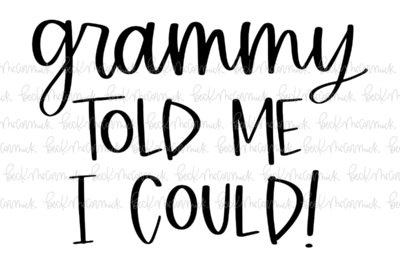 grammy
TOLD ME
I COULD!